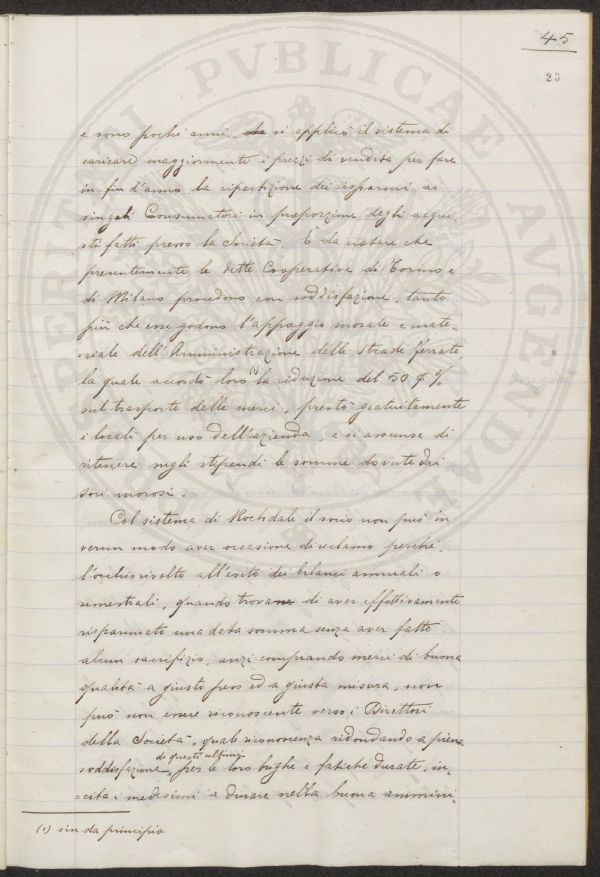 45
23
e sono pochi anni, che si applicò il sistema di
caricare maggiormente i prezzi di vendita per fare
in fin d'anno la ripartizione dei risparmi ai
singoli Consumatori in proporzione degli acqui
sti fatti presso la Società. È da notare che
presentemente le dette Cooperative di Torino e
di Milano procedono con soddisfazione, tanto
più che esse godono l'appoggio morale e mate-
-riale dell'Amministrazione delle Strade ferrate,
la quale accordò loro (1) la riduzione del 50 p %
sul trasporto delle merci, prestò gratuitamente
i locali per uso dell'azienda, e si assunse di
ritenere sugli stipendi le somme dovute dai
soci morosi.
Col sistema di Rochdale il socio non può in
verun modo aver occasione di reclamo perchè,
l'occhio rivolto all'esito dei bilanci annuali o
semestrali, quando trova di aver effettivamente
risparmiato una data somma senza aver fatto
alcun sacrifizio, anzi comprando merci di buona
qualità a giusto peso ed a giusta misura, non
può non essere riconoscente verso i Direttori
della Società, quale riconoscenza ridondando a piena
soddisfazione di questi ultimi, per le loro brighe e fatiche durate, in-
-cita i medesimi a durare nella buona ammini-
(1) sin da principio
PROSPERITATI PVBLICAE AVGENDAE